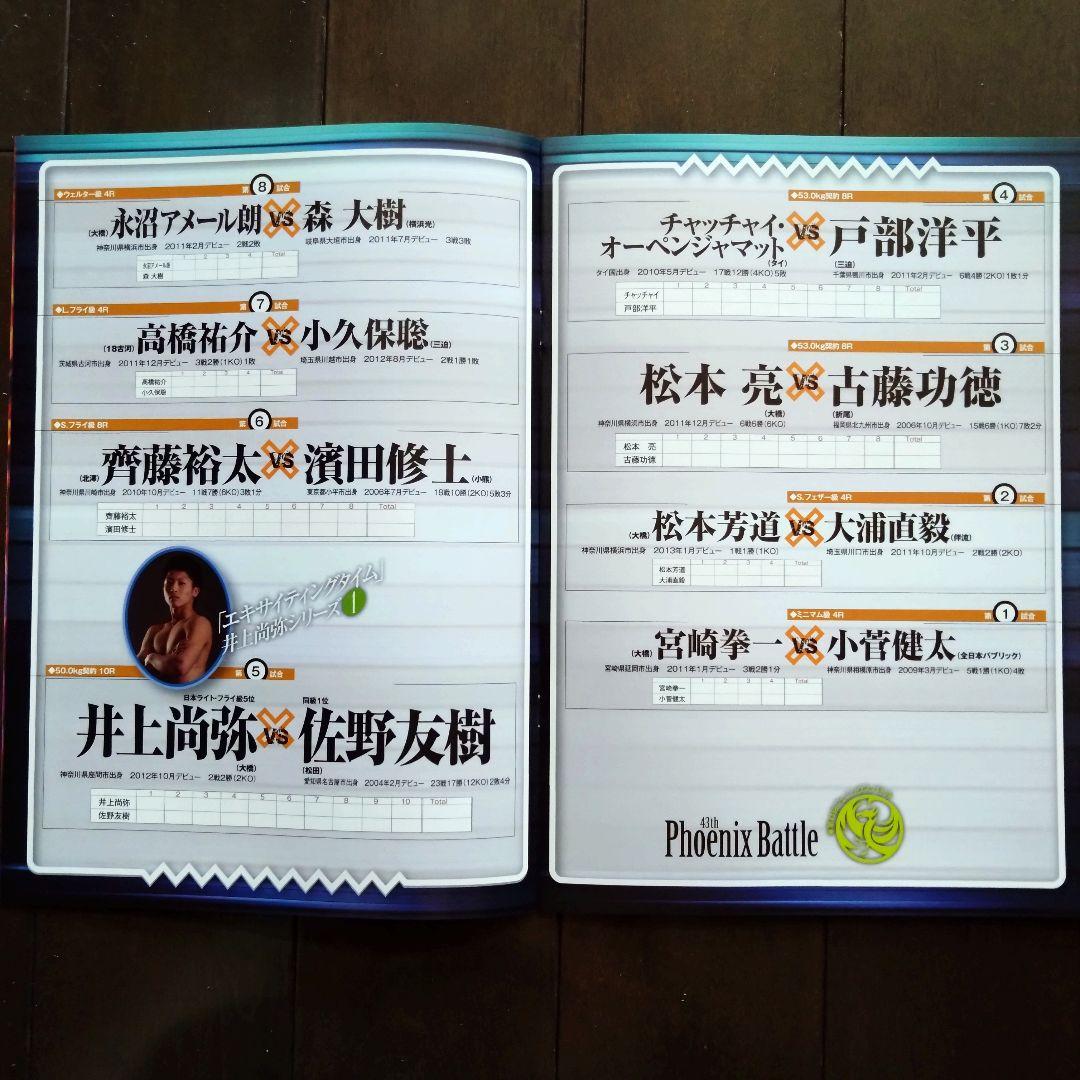 ◆ウェルター級 4R 第8試合
(大橋)永沼アメール朗 VS 森 大樹(横浜光)
神奈川県横浜市出身 2011年2月デビュー 2戦2敗 岐阜県大垣市出身 2011年7月デビュー 3戦3敗
1 2 3 4 Total
永沼アメール朗
森 大樹
◆L.フライ級 4R 第7試合
(18古河)高橋祐介 VS 小久保聡(三迫)
茨城県古河市出身 2011年12月デビュー 3戦2勝(1KO)1敗 埼玉県川越市出身 2012年8月デビュー 2戦1勝1敗
1 2 3 4 Total
高橋祐介
小久保聡
◆S.フライ級 8R 第6試合
(北澤)齊藤裕太 VS 濱田修士(小熊)
神奈川県川崎市出身 2010年10月デビュー 11戦7勝(6KO)3敗1分 東京都小平市出身 2006年7月デビュー 18戦10勝(2KO)5敗3分
1 2 3 4 5 6 7 8 Total
齊藤裕太
濱田修士
「エキサイティングタイム」
井上尚弥シリーズ1
◆50.0kg契約 10R 第5試合
日本ライト・フライ級5位 同級1位
井上尚弥 VS 佐野友樹
(大橋) (松田)
神奈川県座間市出身 2012年10月デビュー 2戦2勝(2KO) 愛知県名古屋市出身 2004年2月デビュー 23戦17勝(12KO)2敗4分
1 2 3 4 5 6 7 8 9 10 Total
井上尚弥
佐野友樹
◆53.0kg契約 8R 第4試合
チャッチャイ・
オーペンジャマット VS 戸部洋平
(タイ) (三迫)
タイ国出身 2010年5月デビュー 17戦12勝(4KO)5敗 千葉県鴨川市出身 2011年2月デビュー 6戦4勝(2KO)1敗1分
1 2 3 4 5 6 7 8 Total
チャッチャイ
戸部洋平
◆53.0kg契約 8R 第3試合
松本 亮 VS 古藤功徳
(大橋) (折尾)
神奈川県横浜市出身 2011年12月デビュー 6戦6勝(6KO) 福岡県北九州市出身 2006年10月デビュー 15戦6勝(1KO)7敗2分
1 2 3 4 5 6 7 8 Total
松本 亮
古藤功徳
◆S.フェザー級 4R 第2試合
(大橋)松本芳道 VS 大浦直毅(輝流)
神奈川県横浜市出身 2013年1月デビュー 1戦1勝(1KO) 埼玉県川口市出身 2011年10月デビュー 2戦2勝(2KO)
1 2 3 4 Total
松本芳道
大浦直毅
◆ミニマム級 4R 第1試合
(大橋)宮崎拳一 VS 小菅健太(全日本パブリック)
宮崎県延岡市出身 2011年1月デビュー 3戦2勝1分 神奈川県相模原市出身 2009年3月デビュー 5戦1勝(1KO)4敗
1 2 3 4 5 Total
宮崎拳一
小菅健太
43th
Phoenix Battle